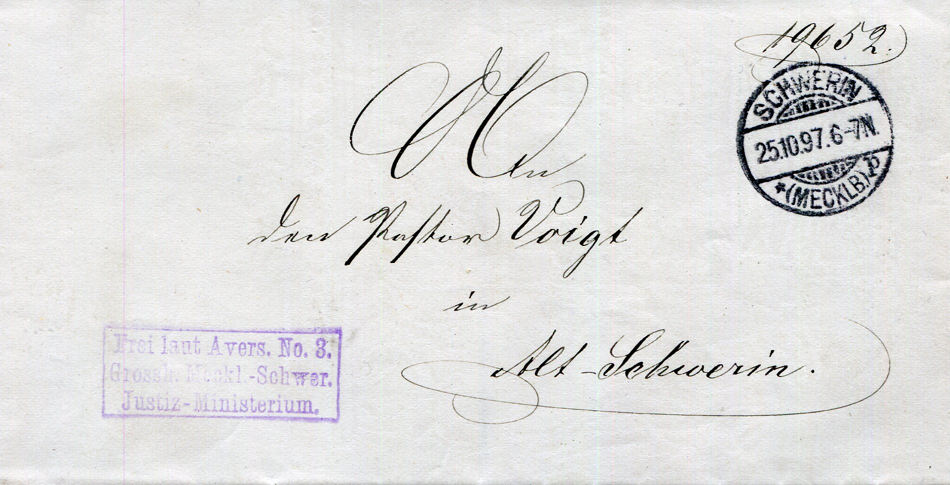 19652.
SCHWERIN
25.10.97.6-7N.
*(MECKLB.)p
An
den Pastor Voigt
in
Alt-Schwerin.
Frei laut Avers. No. 3.
Grossh. Meckl.-Schwer.
Justiz-Ministerium.